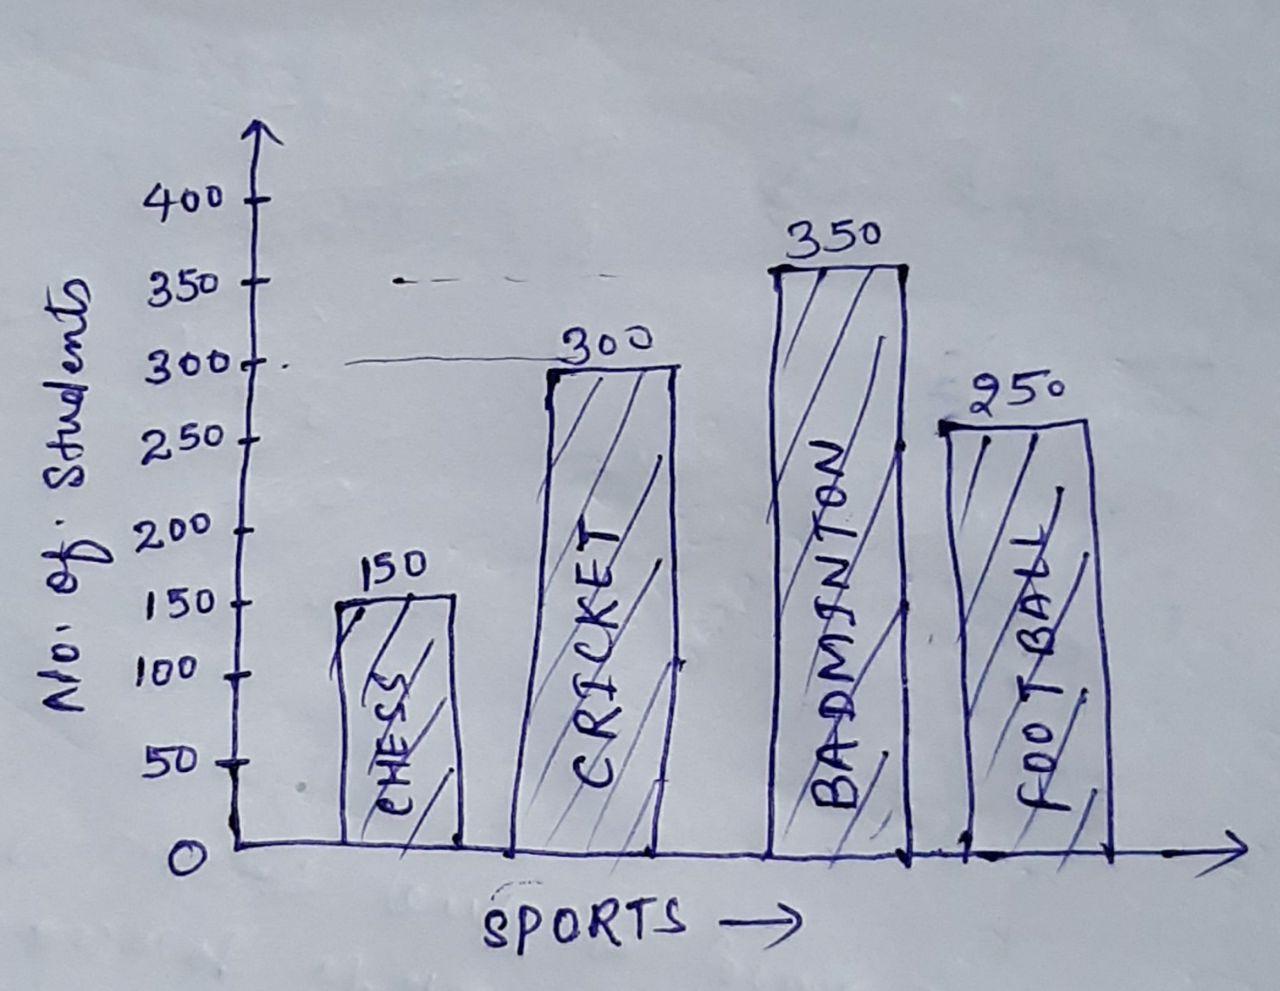 No. of. Students
400
350
300
250
200
150
100
50
0
150
300
350
250
CHESS
CRICKET
BADMINTON
FOOTBALL
SPORTS →